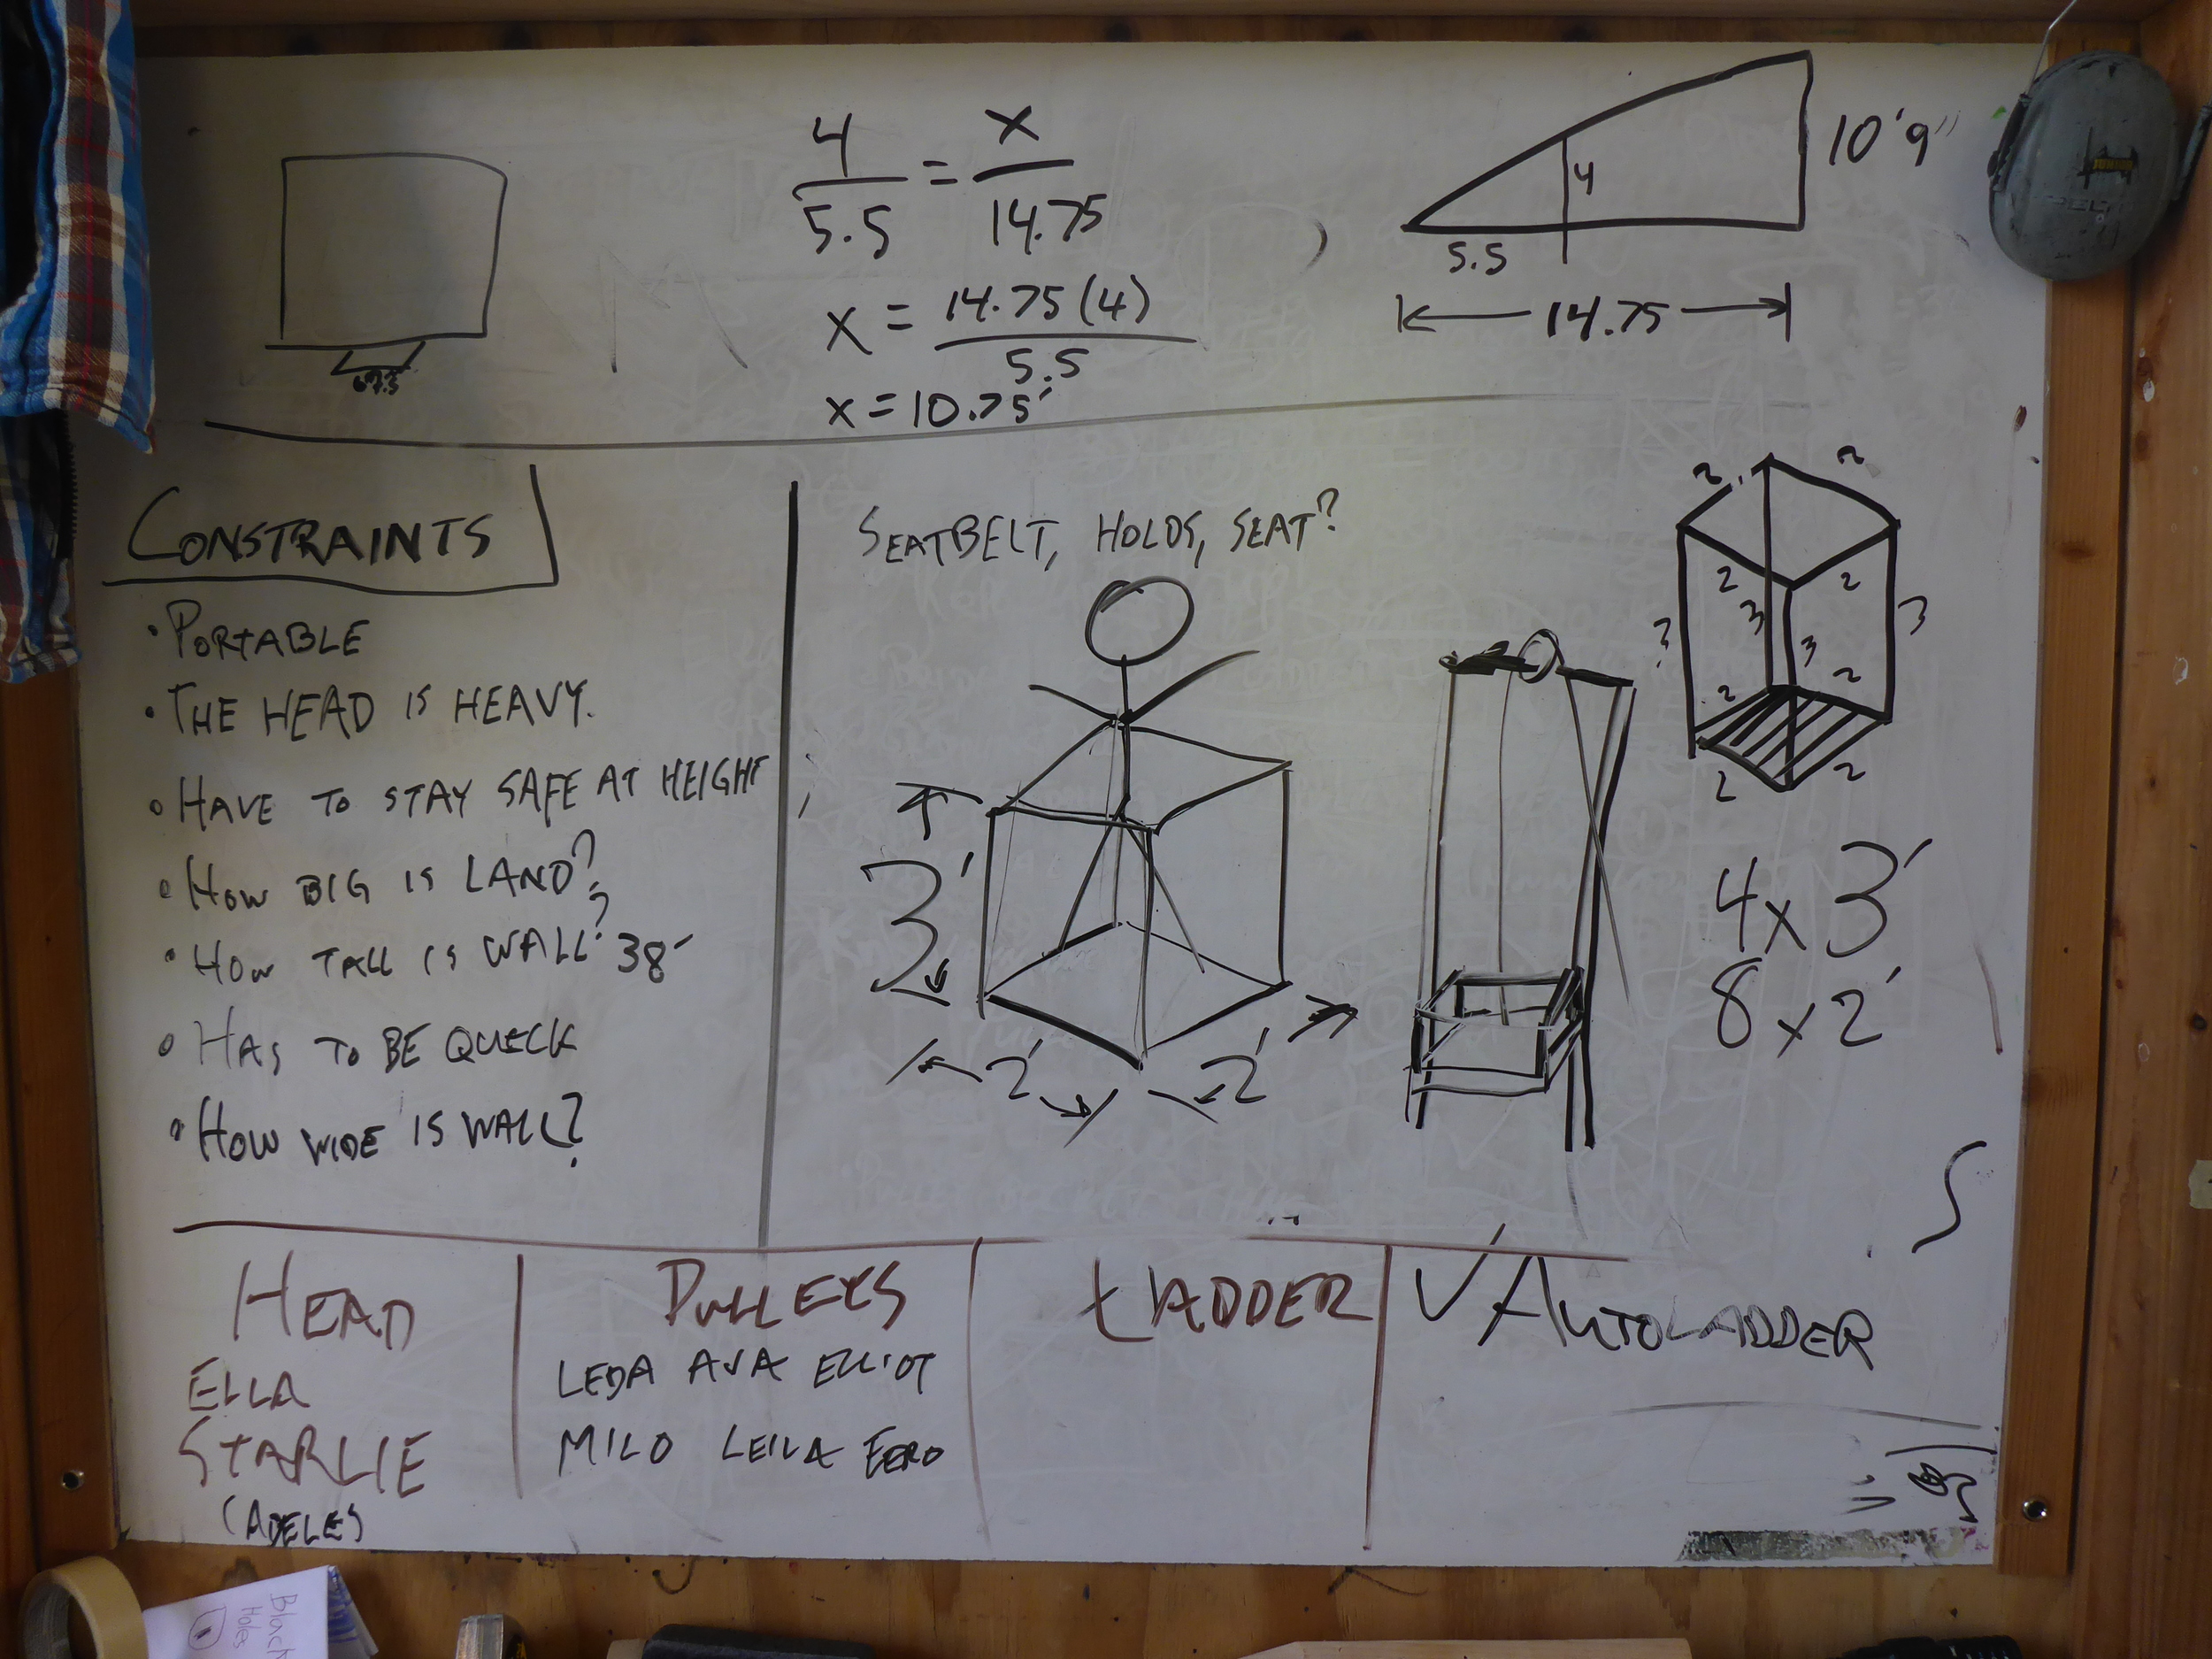 4/5.5 = x/14.75
x = 14.75(4)/5.5
x = 10.75'
4
10'9"
5.5
14.75
CONSTRAINTS
• PORTABLE
• THE HEAD IS HEAVY.
• HAVE TO STAY SAFE AT HEIGHT
• HOW BIG IS LAND?
• HOW TALL IS WALL? 38'
• HAS TO BE QUICK
• HOW WIDE IS WALL?
SEATBELT, HOLDS, SEAT?
3'
2' 2'
2 2
2 2
3 3 3 3
2 2
2 2
4 x 3'
8 x 2'
HEAD
ELLA
STARLIE
(ADELE)
PULLEYS
LEDA AVA ELLIOT
MILO LEILA EERO
LADDER
✓ AUTOLADDER
Black
Holes